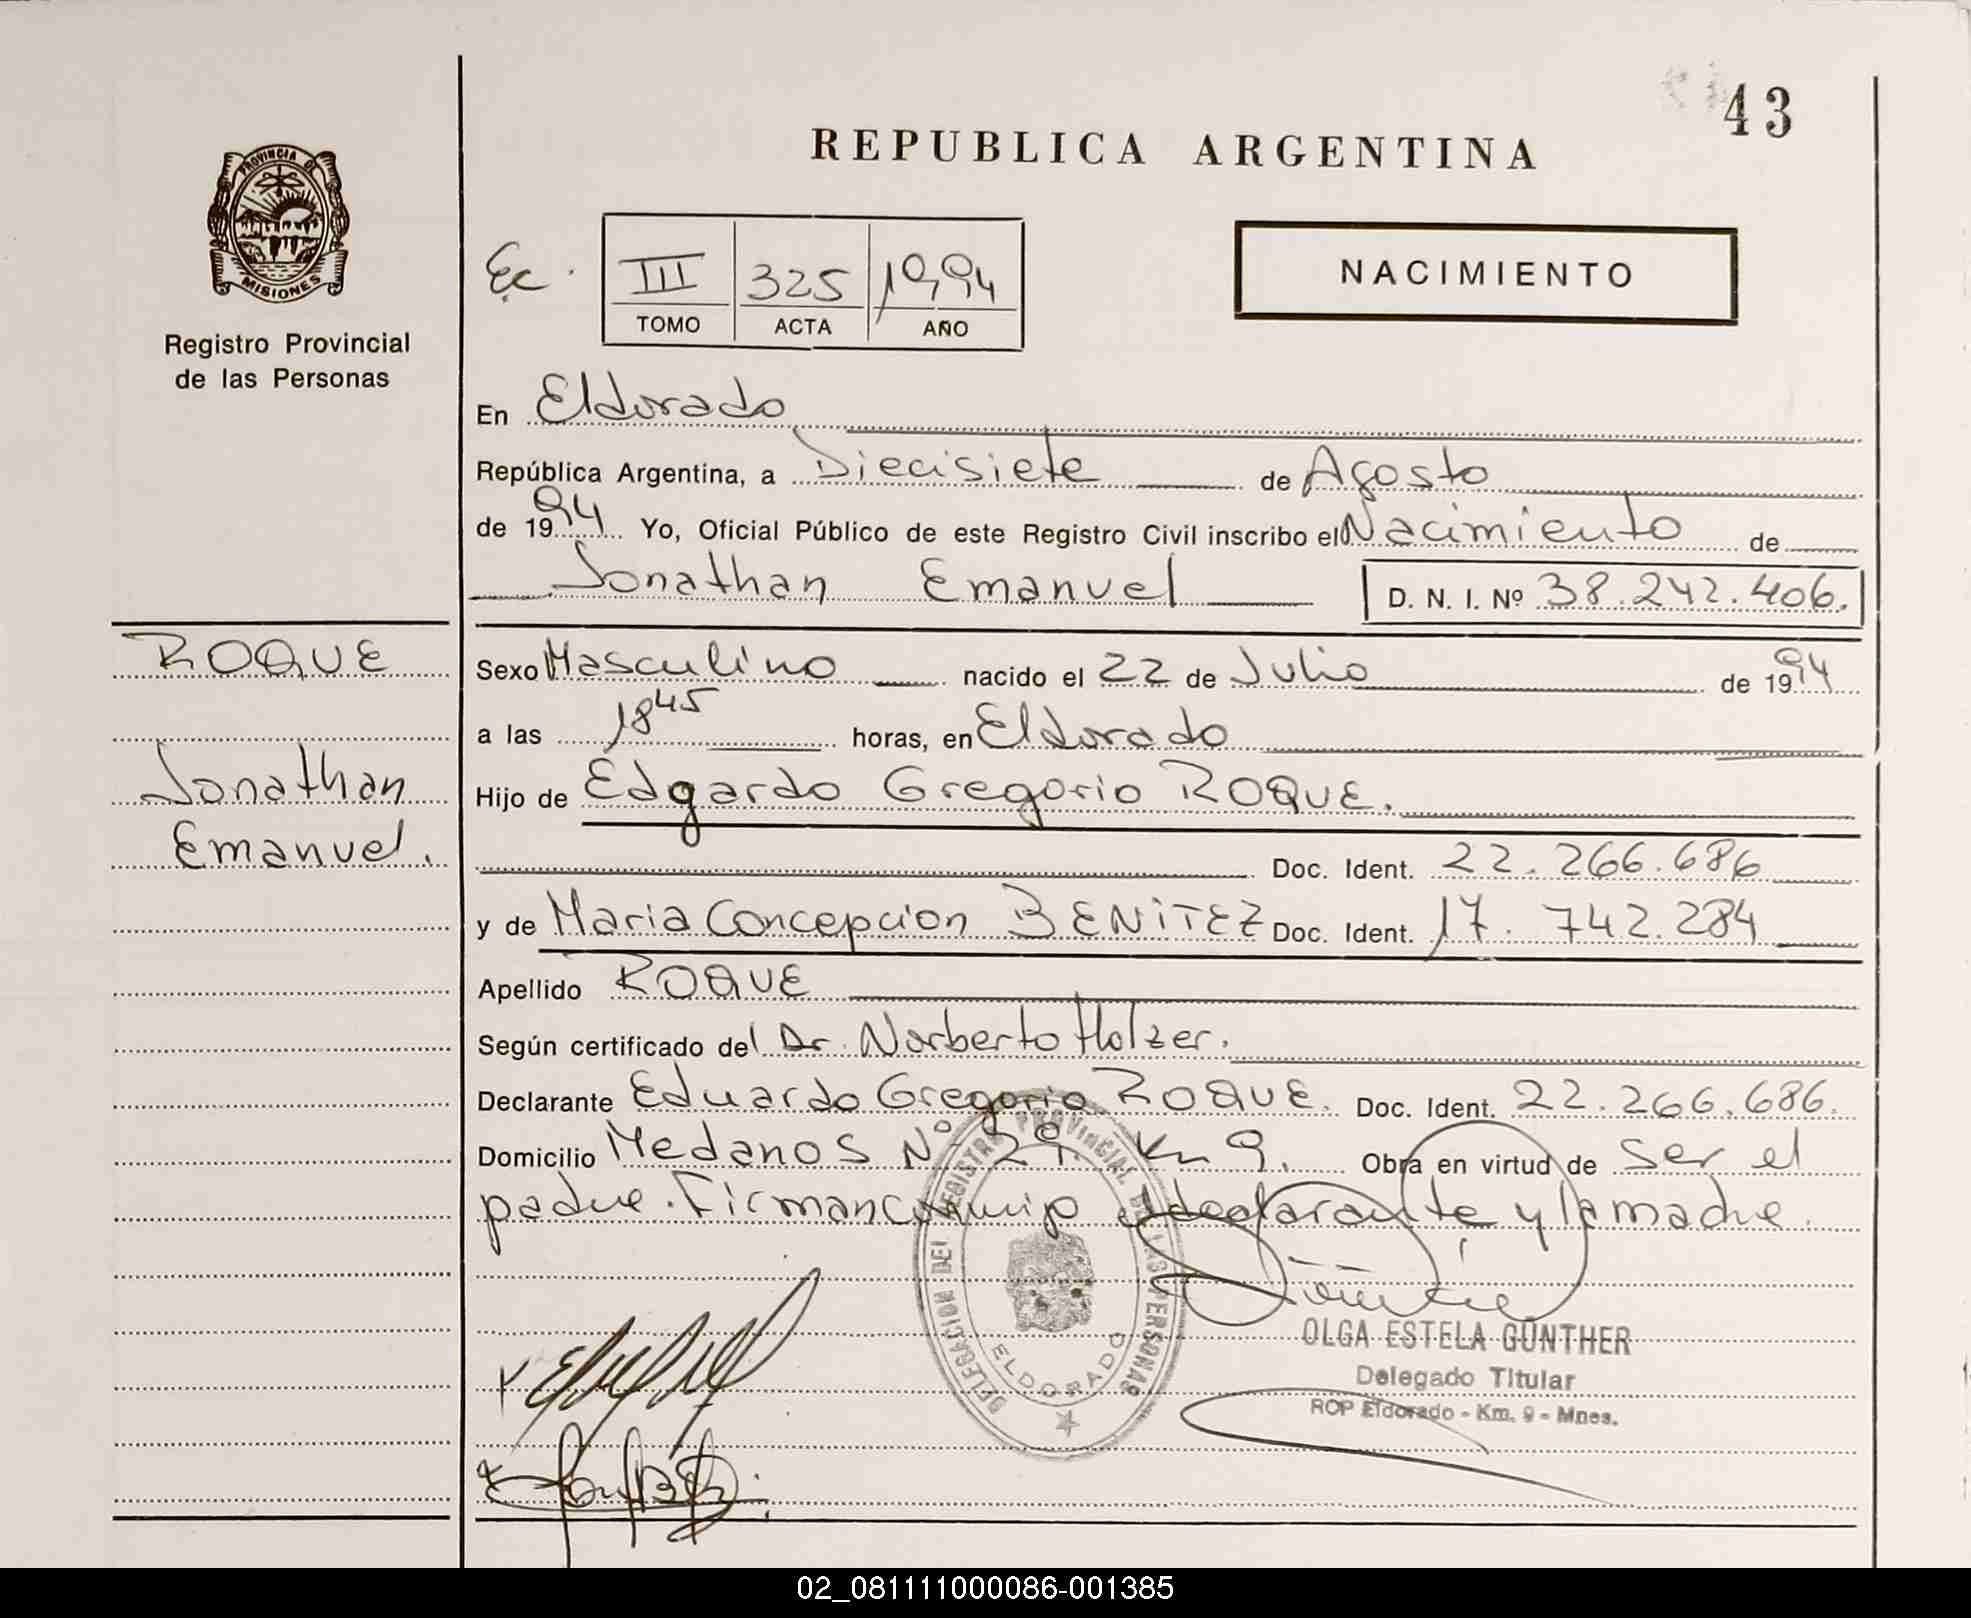 43
REPUBLICA ARGENTINA
PROVINCIA DE
MISIONES
Registro Provincial
de las Personas
Ec.
III 325 1994
TOMO ACTA AÑO
NACIMIENTO
En Eldorado
República Argentina, a Diecisiete de Agosto
de 1994 Yo, Oficial Público de este Registro Civil inscribo el Nacimiento de
Jonathan Emanuel D. N. I. Nº 38.242.406.
ROQUE
Jonathan
Emanuel.
Sexo Masculino nacido el 22 de Julio de 1994
a las 18 45 horas, en Eldorado
Hijo de Edgardo Gregorio ROQUE.
Doc. Ident. 22.266.686
y de Maria Concepcion BENITEZ Doc. Ident. 17.742.284
Apellido ROQUE
Según certificado del Dr. Norberto Holzer.
Declarante Eduardo Gregorio ROQUE. Doc. Ident. 22.266.686.
Domicilio Medanos Nº 29. Km 9. Obra en virtud de ser el
padre. Firman conmigo el declarante y la madre.
DELEGACION DEL REGISTRO PROVINCIAL DE LAS PERSONAS
ELDORADO
OLGA ESTELA GÜNTHER
Delegado Titular
ROP Eldorado - Km. 9 - Mnes.
02_081111000086-001385